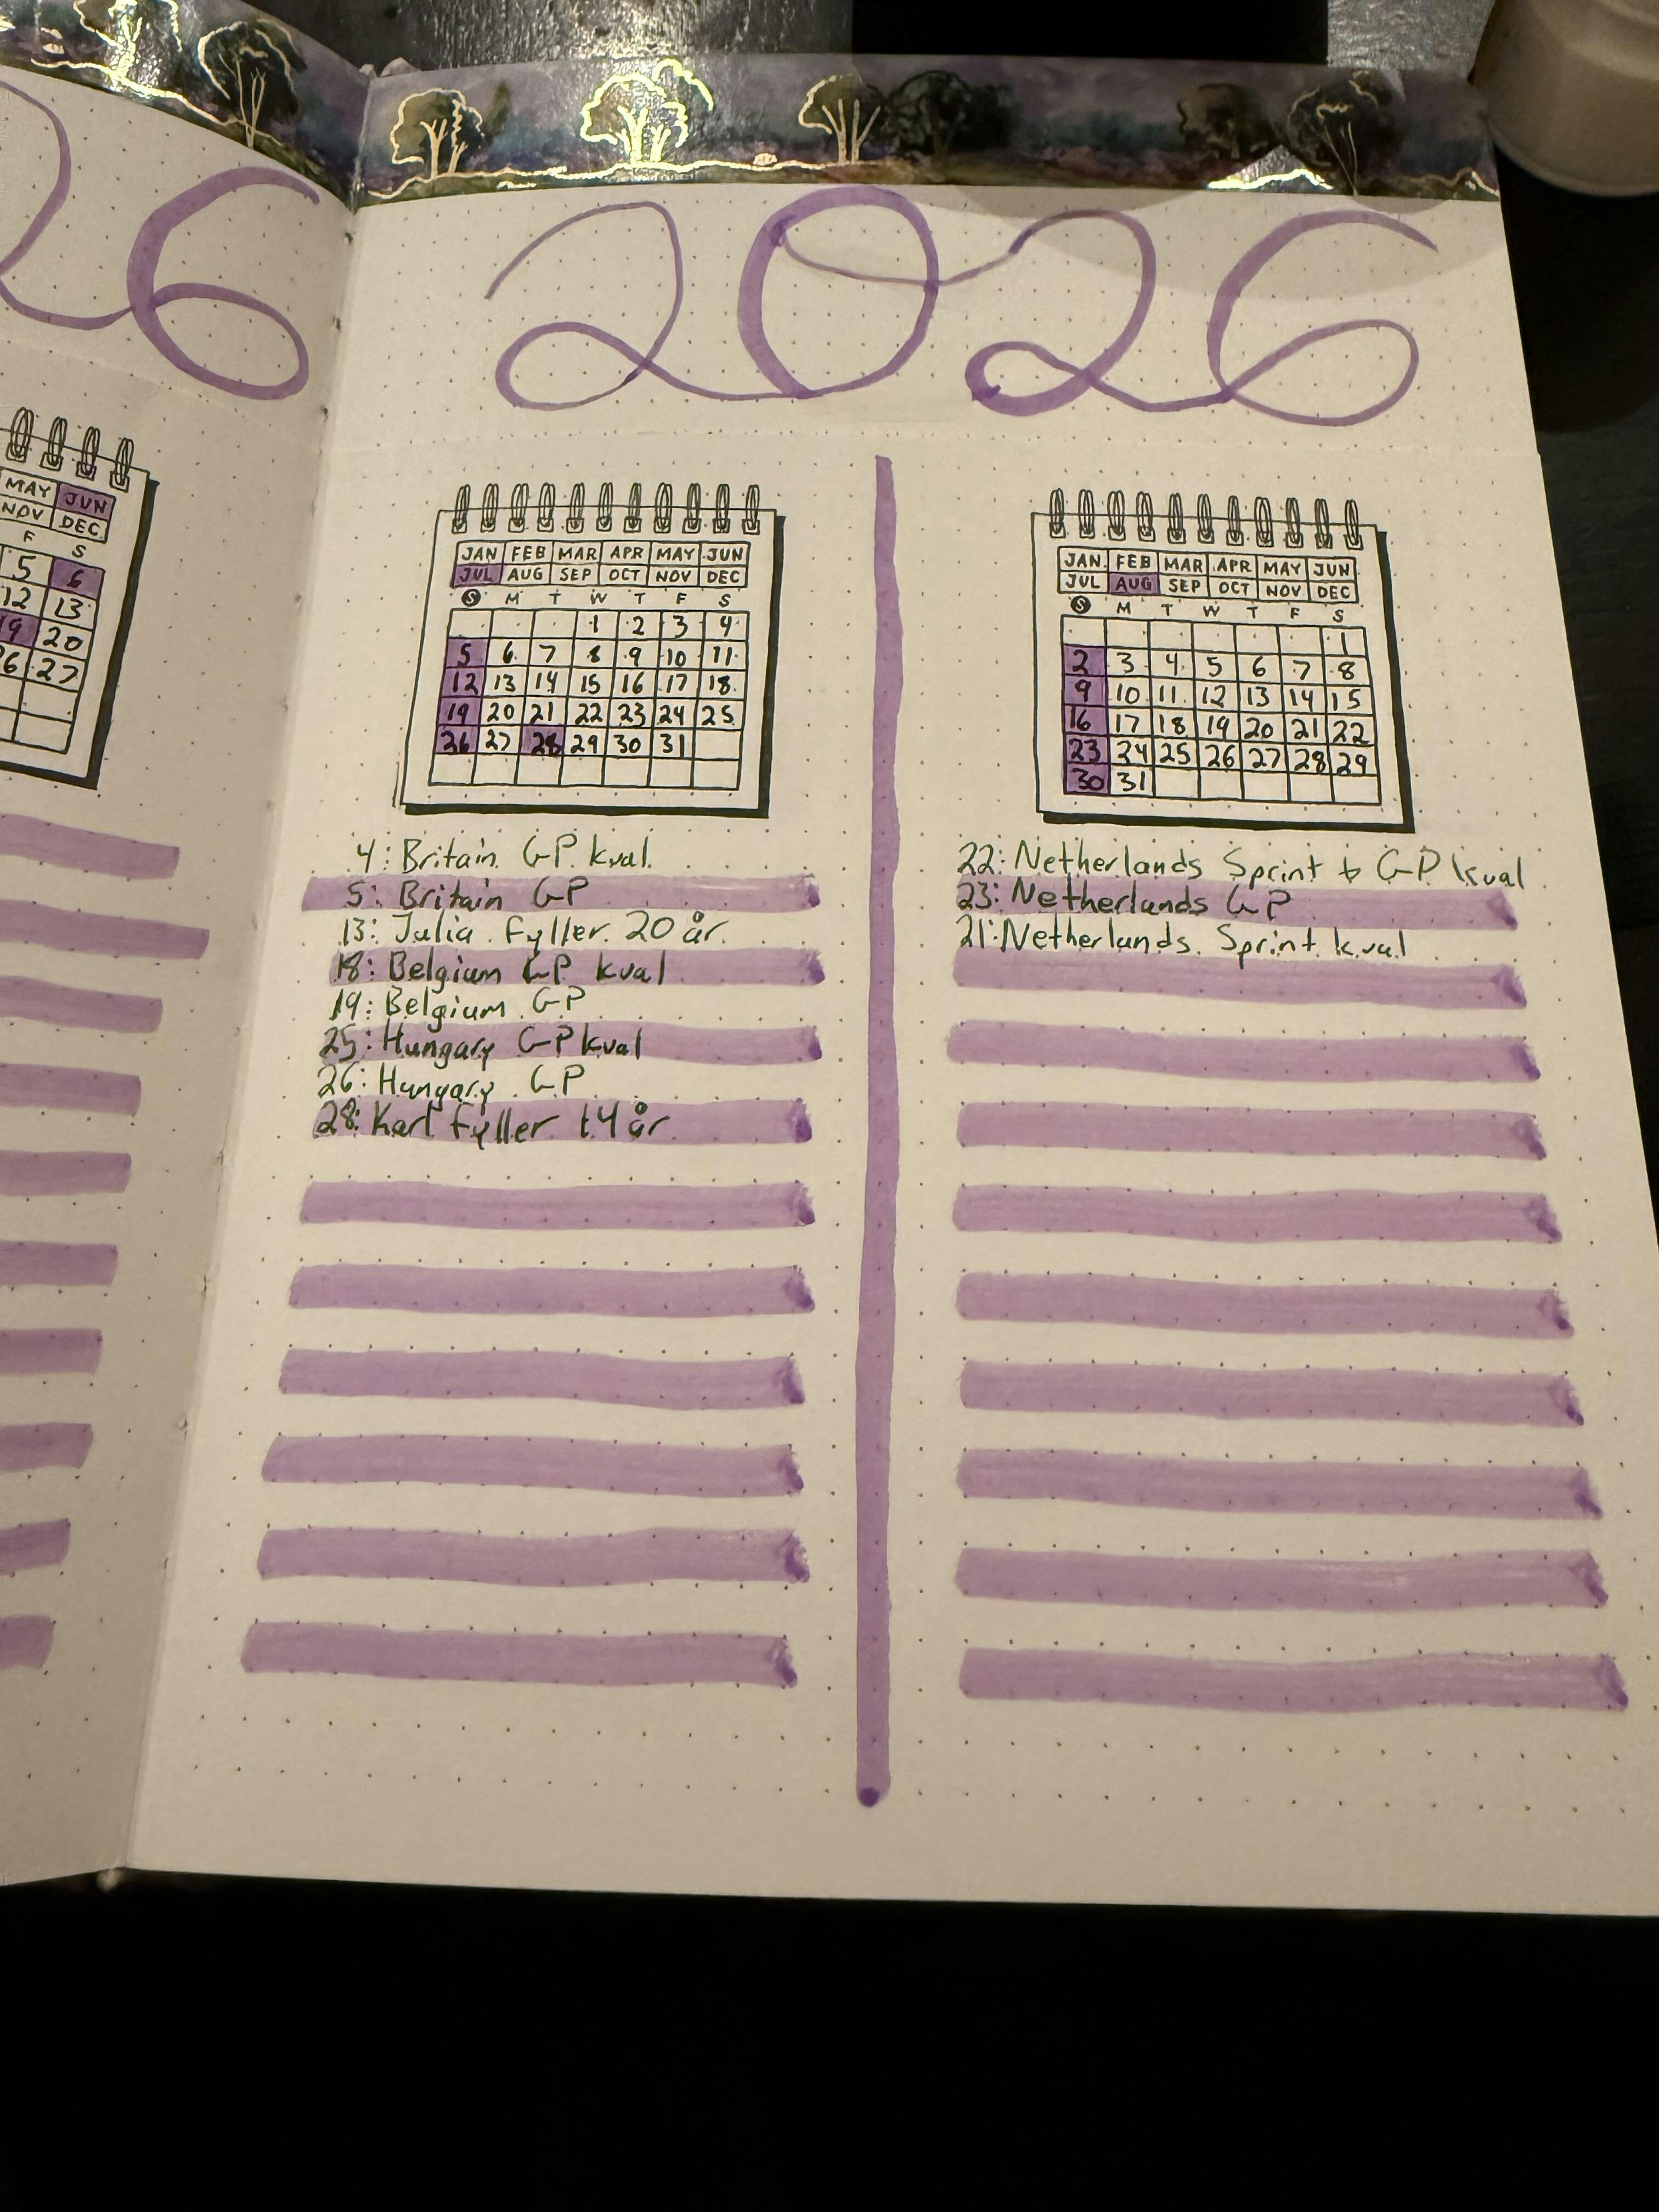 26
2026
MAY JUN
NOV DEC
F S
5 6
12 13
19 20
26 27
JAN FEB MAR APR MAY JUN
JUL AUG SEP OCT NOV DEC
S M T W T F S
1 2 3 4
5 6 7 8 9 10 11
12 13 14 15 16 17 18
19 20 21 22 23 24 25
26 27 28 29 30 31
4: Britain GP kval
5: Britain GP
13: Julia fyller 20 år
18: Belgium GP kval
19: Belgium GP
25: Hungary GP kval
26: Hungary GP
28: Karl fyller 14 år
JAN FEB MAR APR MAY JUN
JUL AUG SEP OCT NOV DEC
S M T W T F S
1
2 3 4 5 6 7 8
9 10 11 12 13 14 15
16 17 18 19 20 21 22
23 24 25 26 27 28 29
30 31
22: Netherlands Sprint & GP kval
23: Netherlands GP
21: Netherlands Sprint kval